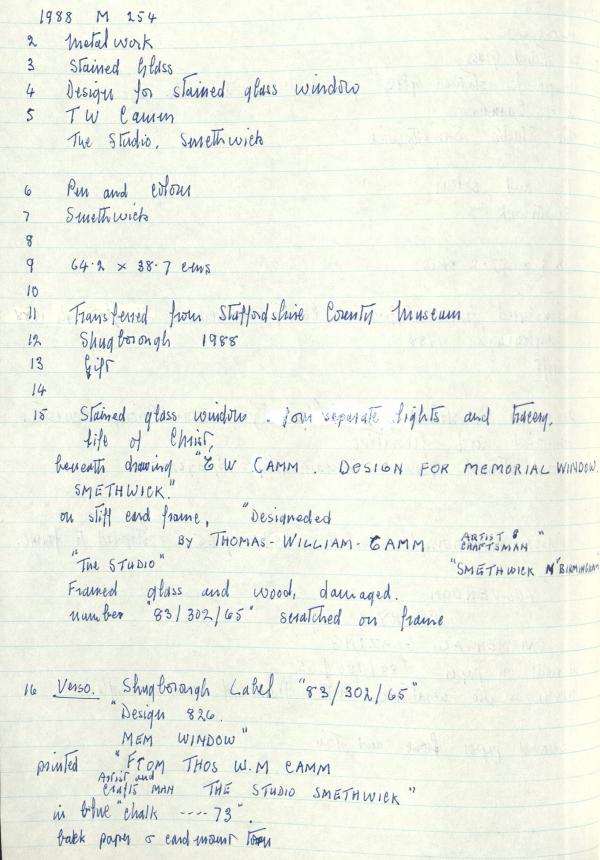 1988 M 254
2 Metalwork
3 Stained Glass
4 Design for stained glass window
5 T W Camm
The Studio, Smethwick
6 Pen and colour
7 Smethwick
8
9 64.2 x 38.7 cms
10
11 Transferred from Staffordshire County Museum
12 Shugborough 1988
13 Gift
14
15 Stained glass window. four separate lights and tracery.
life of Christ,
beneath drawing "T W CAMM. DESIGN FOR MEMORIAL WINDOW.
SMETHWICK."
on stiff card frame, "Designeded
BY THOMAS-WILLIAM-CAMM ARTIST & CRAFTSMAN"
"The STUDIO" "SMETHWICK Nr BIRMINGHAM
Framed glass and wood, damaged.
number "83/302/65" scratched on frame
16 Verso. Shugborough Label "83/302/65"
"Design 826.
MEM WINDOW"
printed "FROM THOS W.M CAMM
Artist and
Crafts MAN THE STUDIO SMETHWICK"
in blue "chalk ---- 73".
back paper & card mount torn